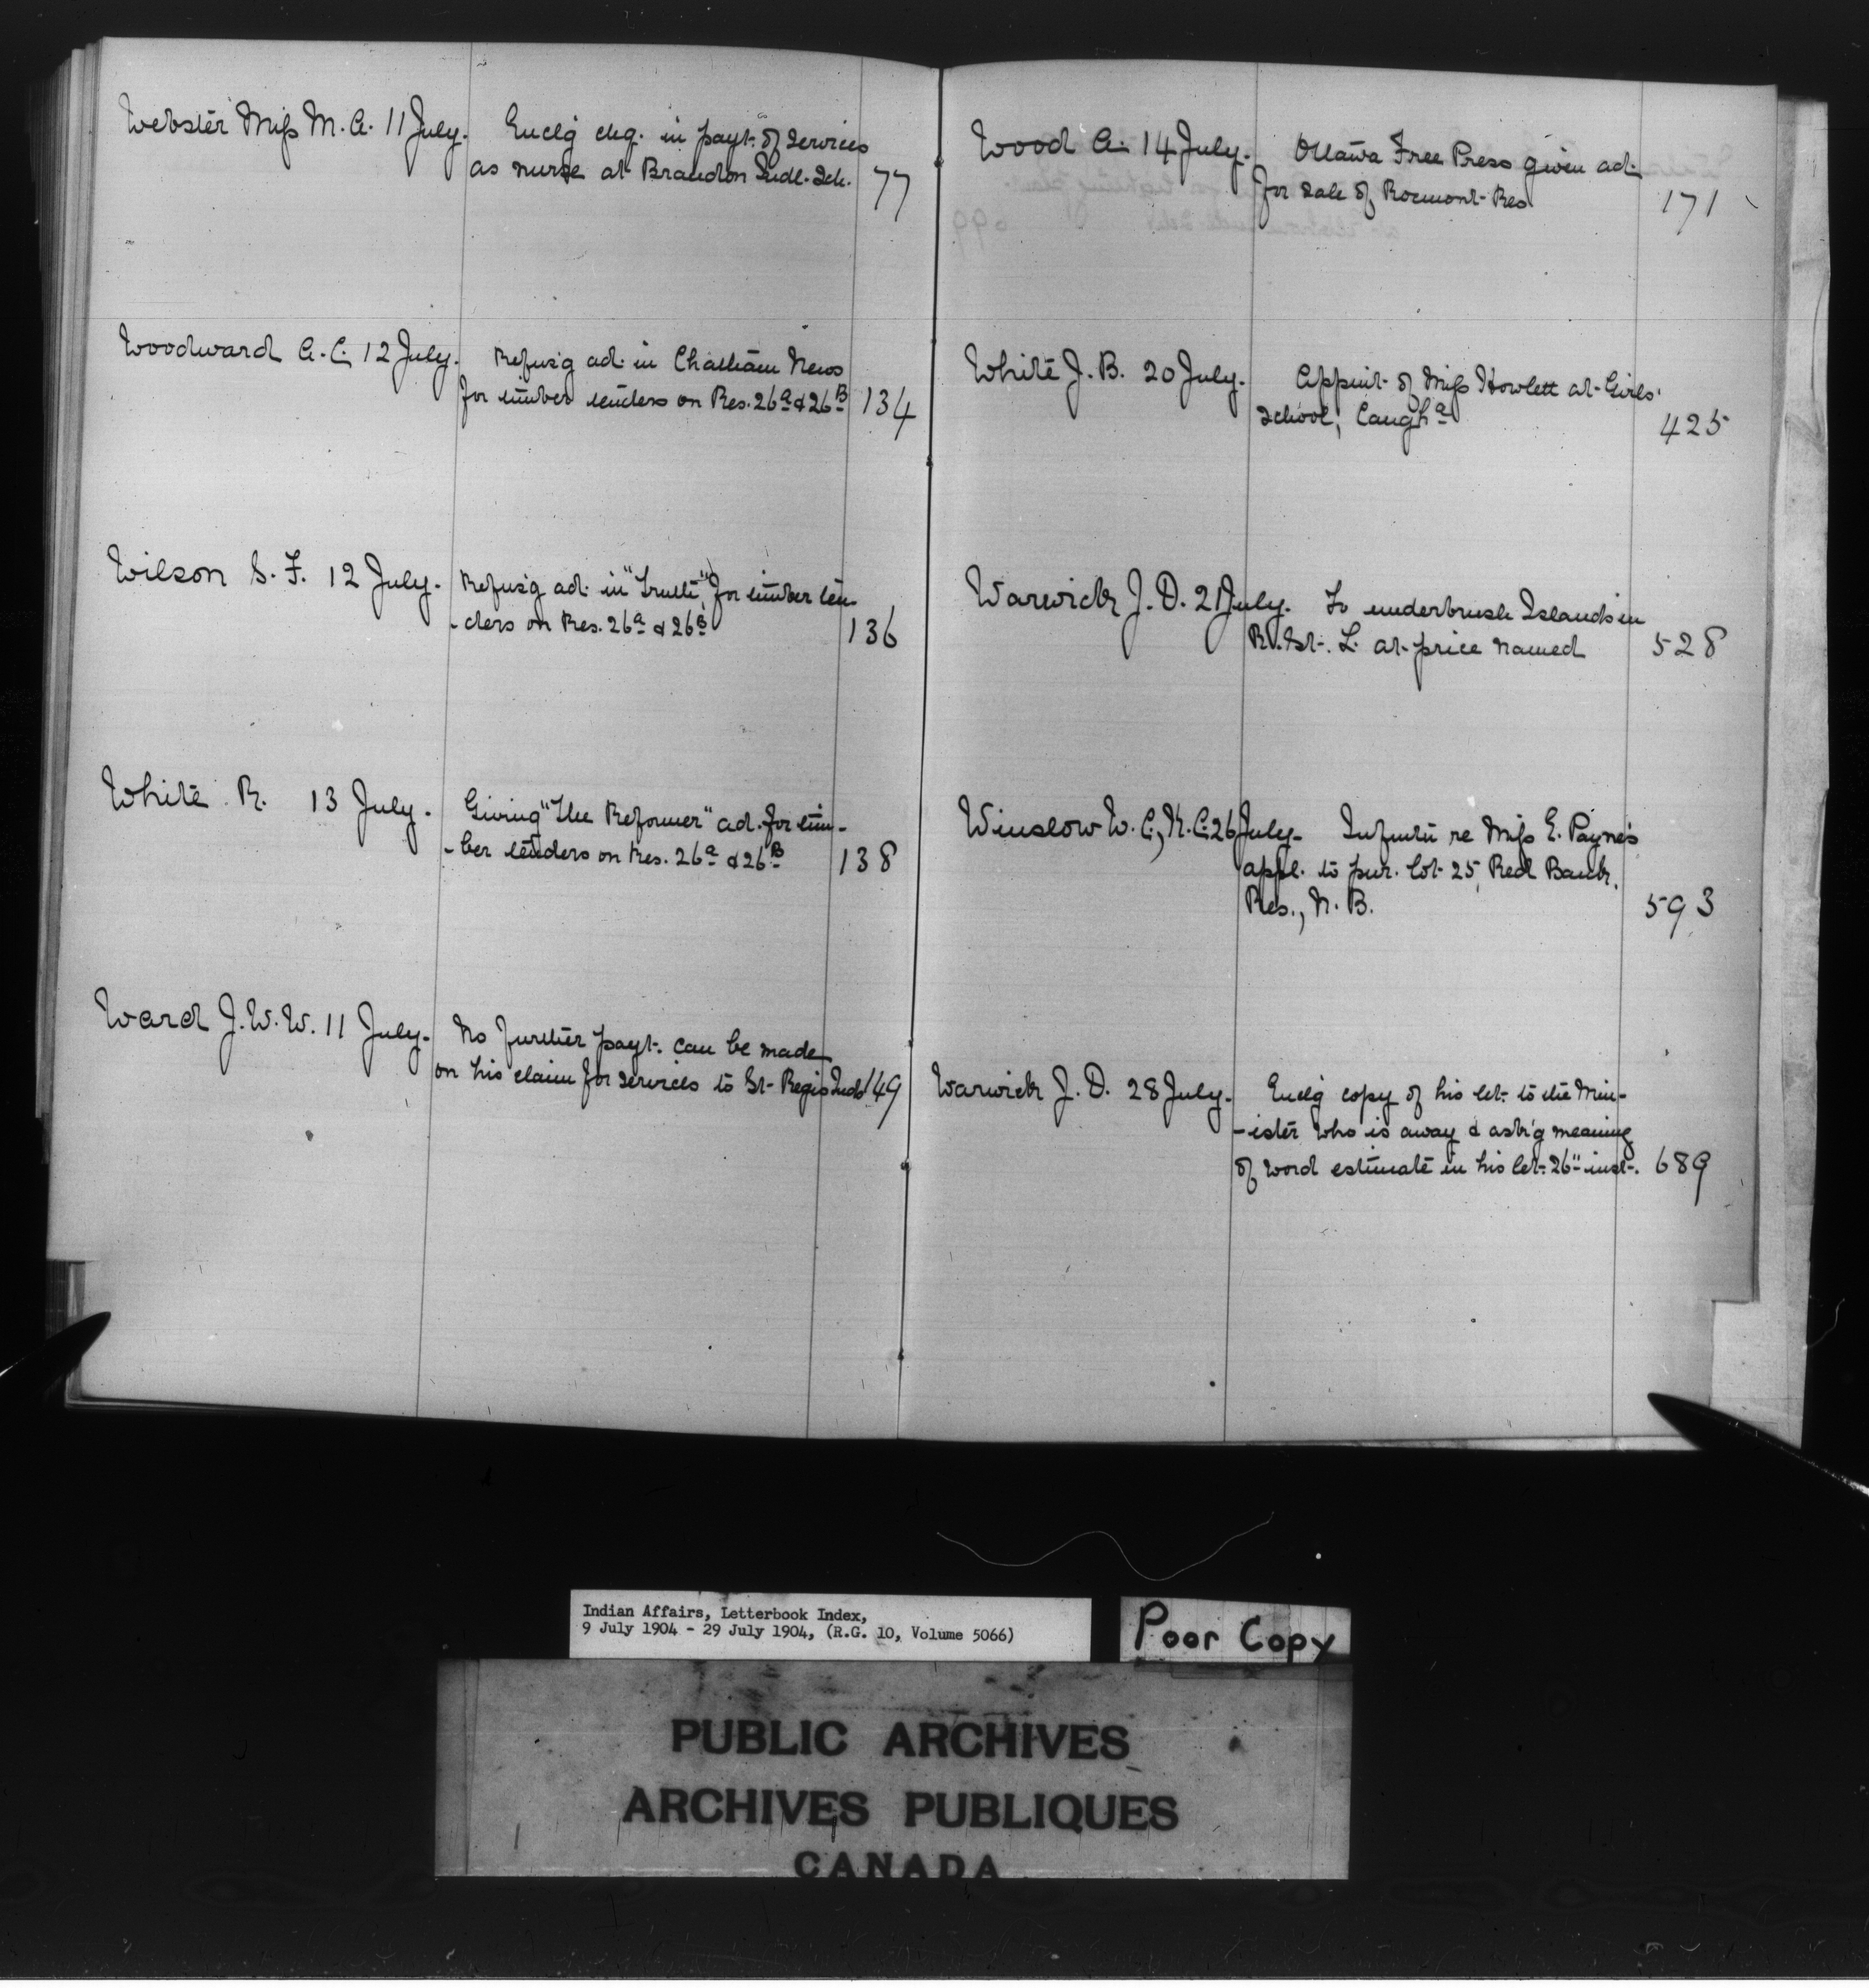 Webster Miss M. A. 11 July. Enclg chq. in payt. of services
as nurse at Brandon Indl. Sch. 77
Woodward A. C. 12 July. Refus'g ad. in Chatham News
for timber tenders on Res. 26a & 26B 134
Wilson S. F. 12 July. Refus'g ad. in "Truth", for timber ten-
-ders on Res. 26a & 26B 136
White R. 13 July. Giving "The Reformer" ad. for tim-
-ber tenders on Res. 26a & 26B 138
Ward J. W. W. 11 July. No further payt. can be made
on his claim for services to St. Regis Inds 149
Wood A. 14 July. Ottawa Free Press given ad.
for sale of Res. 171
White J. B. 20 July. Appmt. of Miss Howlett at Girls'
School, Caugha 425
Warwick J. D. 21 July. To underbrush Islands in
Rv. St. L. at price named 528
Winslow W. C., K. C. 26 July. Infmtn re Miss E. Payne's
appl. to pur. lot 25, Red Bank
Res., N. B. 593
Warwick J. D. 28 July. Enclg copy of his let. to the Min-
-ister who is away & ask'g meaning
of word estimate in his let. 26" inst. 689
Indian Affairs, Letterbook Index,
9 July 1904 - 29 July 1904, (R.G. 10, Volume 5066)
Poor Copy
PUBLIC ARCHIVES
ARCHIVES PUBLIQUES
CANADA